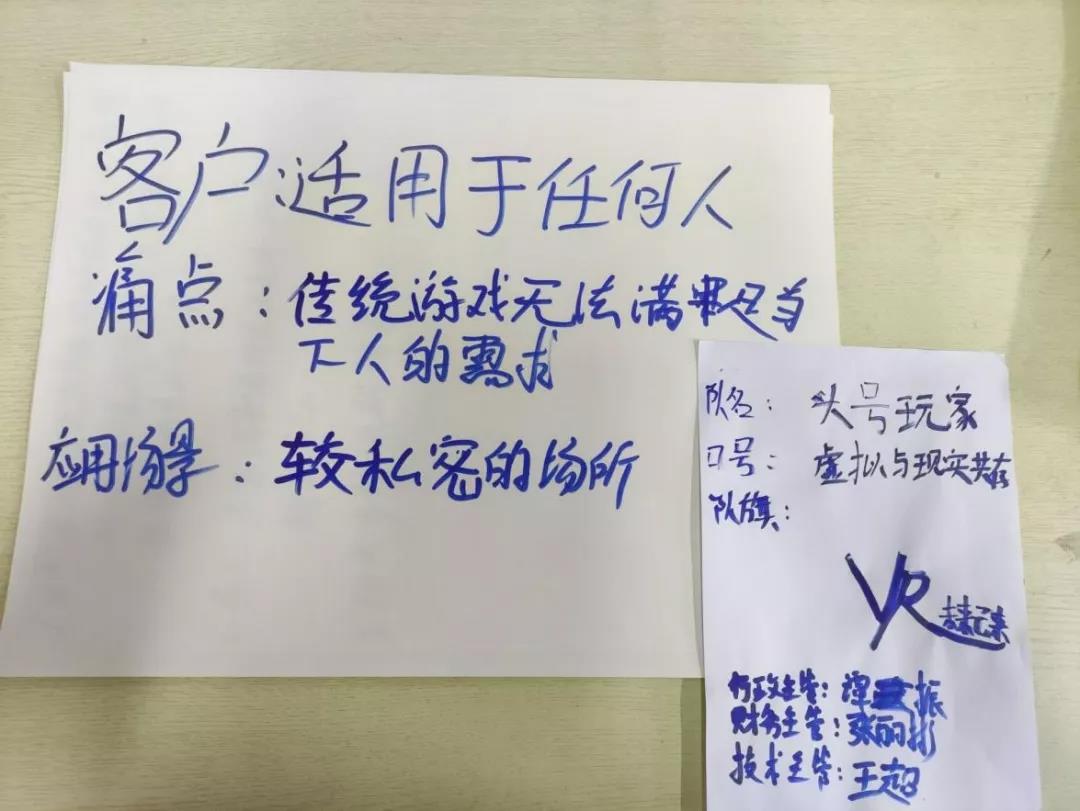 客户:适用于任何人
痛点:传统游戏无法满足当
下人的需求
应用场景:较私密的场所
队名:头号玩家
口号:虚拟与现实共存
队旗:
VR未来已来
行政主管:谭振
财务主管:张丽彬
技术主管:王超